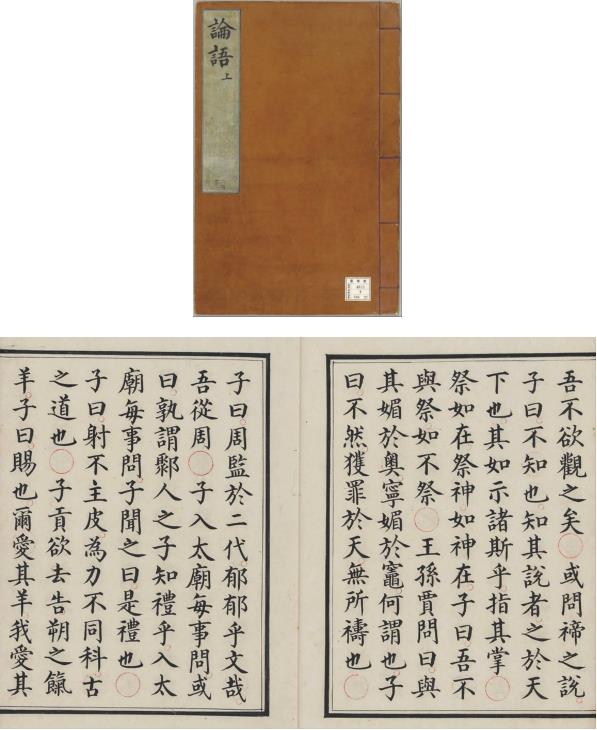 論語
上
吾不欲觀之矣○或問禘之說
子曰不知也知其說者之於天
下也其如示諸斯乎指其掌○
祭如在祭神如神在子曰吾不
與祭如不祭○王孫賈問曰與
其媚於奧寧媚於竈何謂也子
曰不然獲罪於天無所禱也○
子曰周監於二代郁郁乎文哉
吾從周○子入太廟每事問或
曰孰謂鄹人之子知禮乎入太
廟每事問子聞之曰是禮也○
子曰射不主皮為力不同科古
之道也○子貢欲去告朔之餼
羊子曰賜也爾愛其羊我愛其